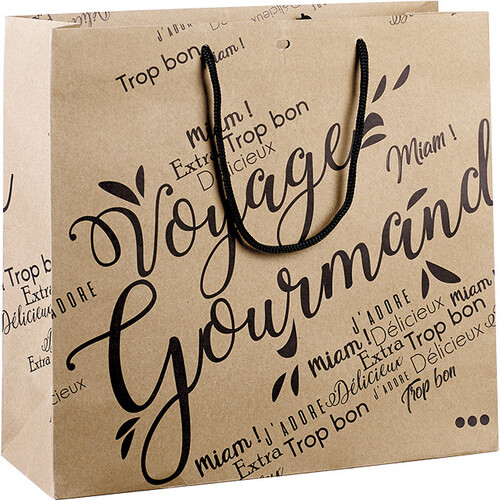 J'ADORE
Délicieux
Miam !
Délicieux
Trop bon
Miam !
Extra Trop bon
Délicieux
Miam !
Voyage
Gourmand
Trop bon
Extra
Délicieux
J'ADORE
Extra
J'ADORE
Miam !
Délicieux
Extra Trop bon
Miam !
Délicieux
J'ADORE
Délicieux
Trop bon
J'ADORE
Miam !
Extra Trop bon
Délicieux